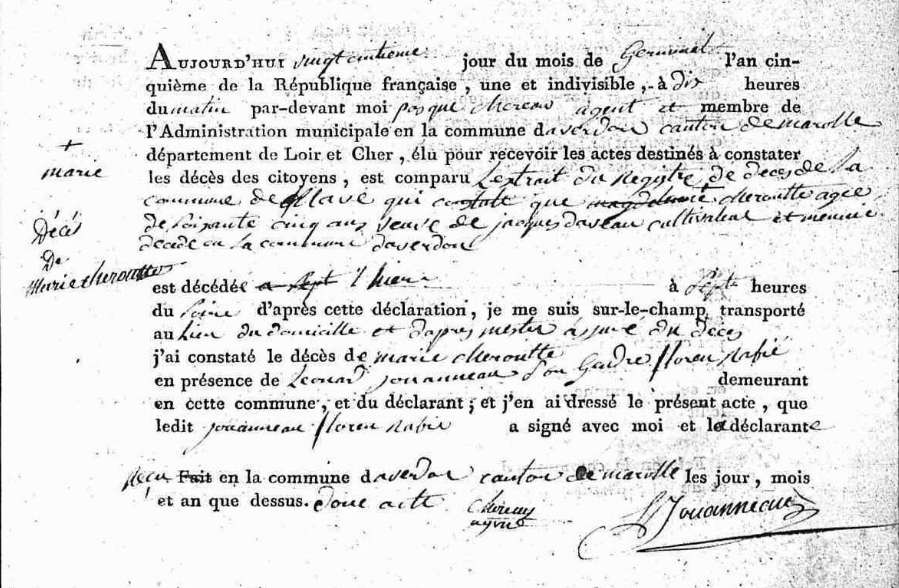 AUJOURD'HUI vingt untieme jour du mois de Germinal l'an cin-
quième de la République française, une et indivisible, à dix heures
du matin par-devant moi chereau agent et membre de
l'Administration municipale en la commune daverdon canton de marolle
+
marie
département de Loir et Cher, élu pour recevoir les actes destinés à constater
les décès des citoyens, est comparu Lextrait du Registre de deces de La
commune de qui constate que cheroutte agee
Décès
De
Marie cheroutte
de Soixante cinq ans veuve de jacques daveau cultivateur et
decede en la commune daverdon
est décédée a sept hier à Septs heures
du Soire d'après cette déclaration, je me suis sur-le-champ transporté
au Lieu du domicille et dapres mester assure du deces
j'ai constaté le décès de marie cheroutte
en présence de Leonard jouanneau Son Gendre floren Rabié demeurant
en cette commune, et du déclarant; et j'en ai dressé le présent acte, que
ledit jouanneau floren Rabié a signé avec moi et le déclarante
Fait en la commune daverdon canton de marolle les jour, mois
et an que dessus. Dont acte
L Jouanneau